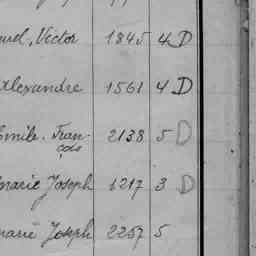 Victor 1845 4 D
Alexandre 1561 4 D
Emile. Fran- 2138 5 D
çois
Marie Joseph 1217 3 D
Marie Joseph 2257 5